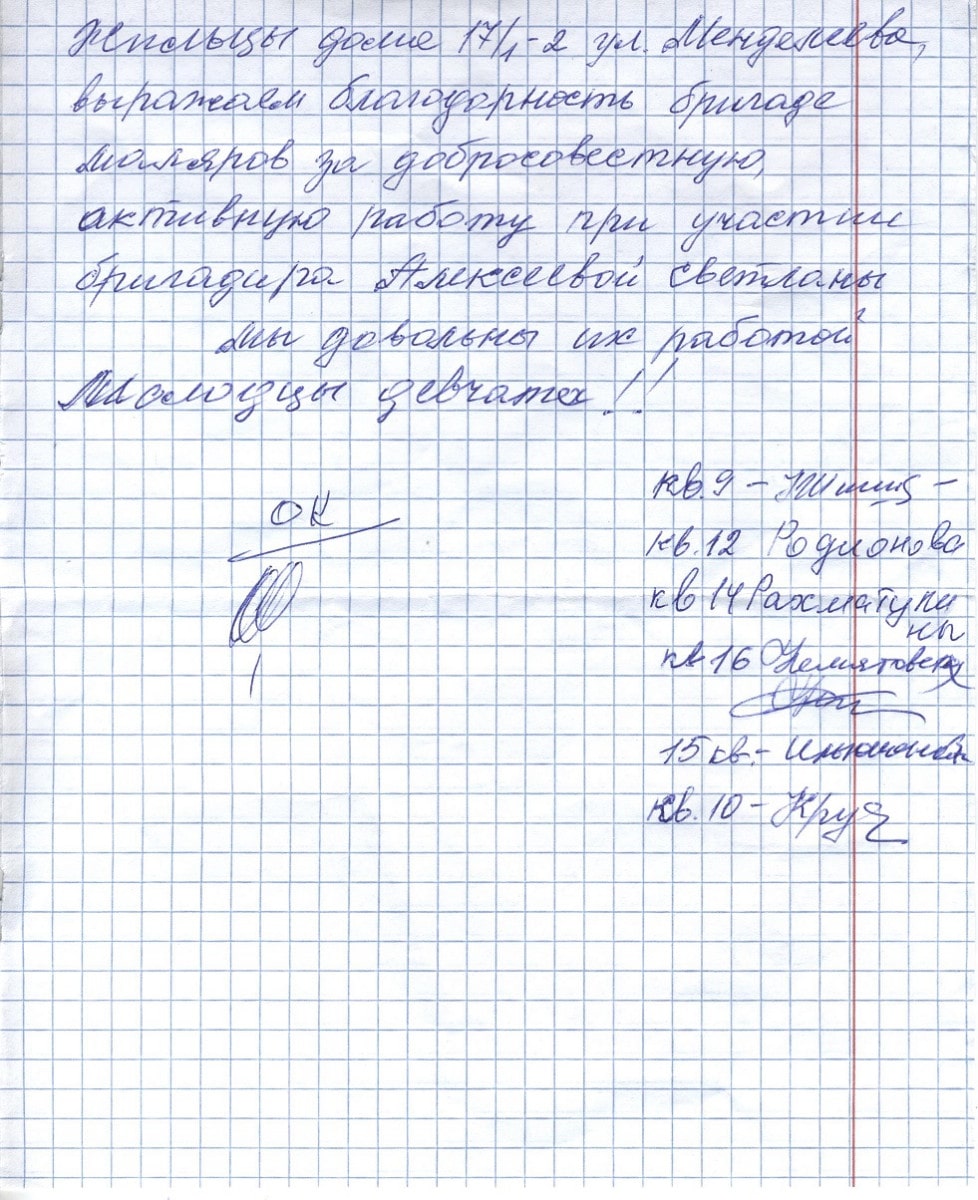 Жильцы дома 17/1-2 ул. Менделеева,
выражаем благодарность бригаде
маляров за добросовестную,
активную работу при участии
бригадира Алексеевой Светланы
мы довольны их работой
Молодцы девчата!!
ОК
кв.9 -
кв.12 Родионова
кв 14 Рахматули
ны
кв 16
15 кв. -
кв. 10 -